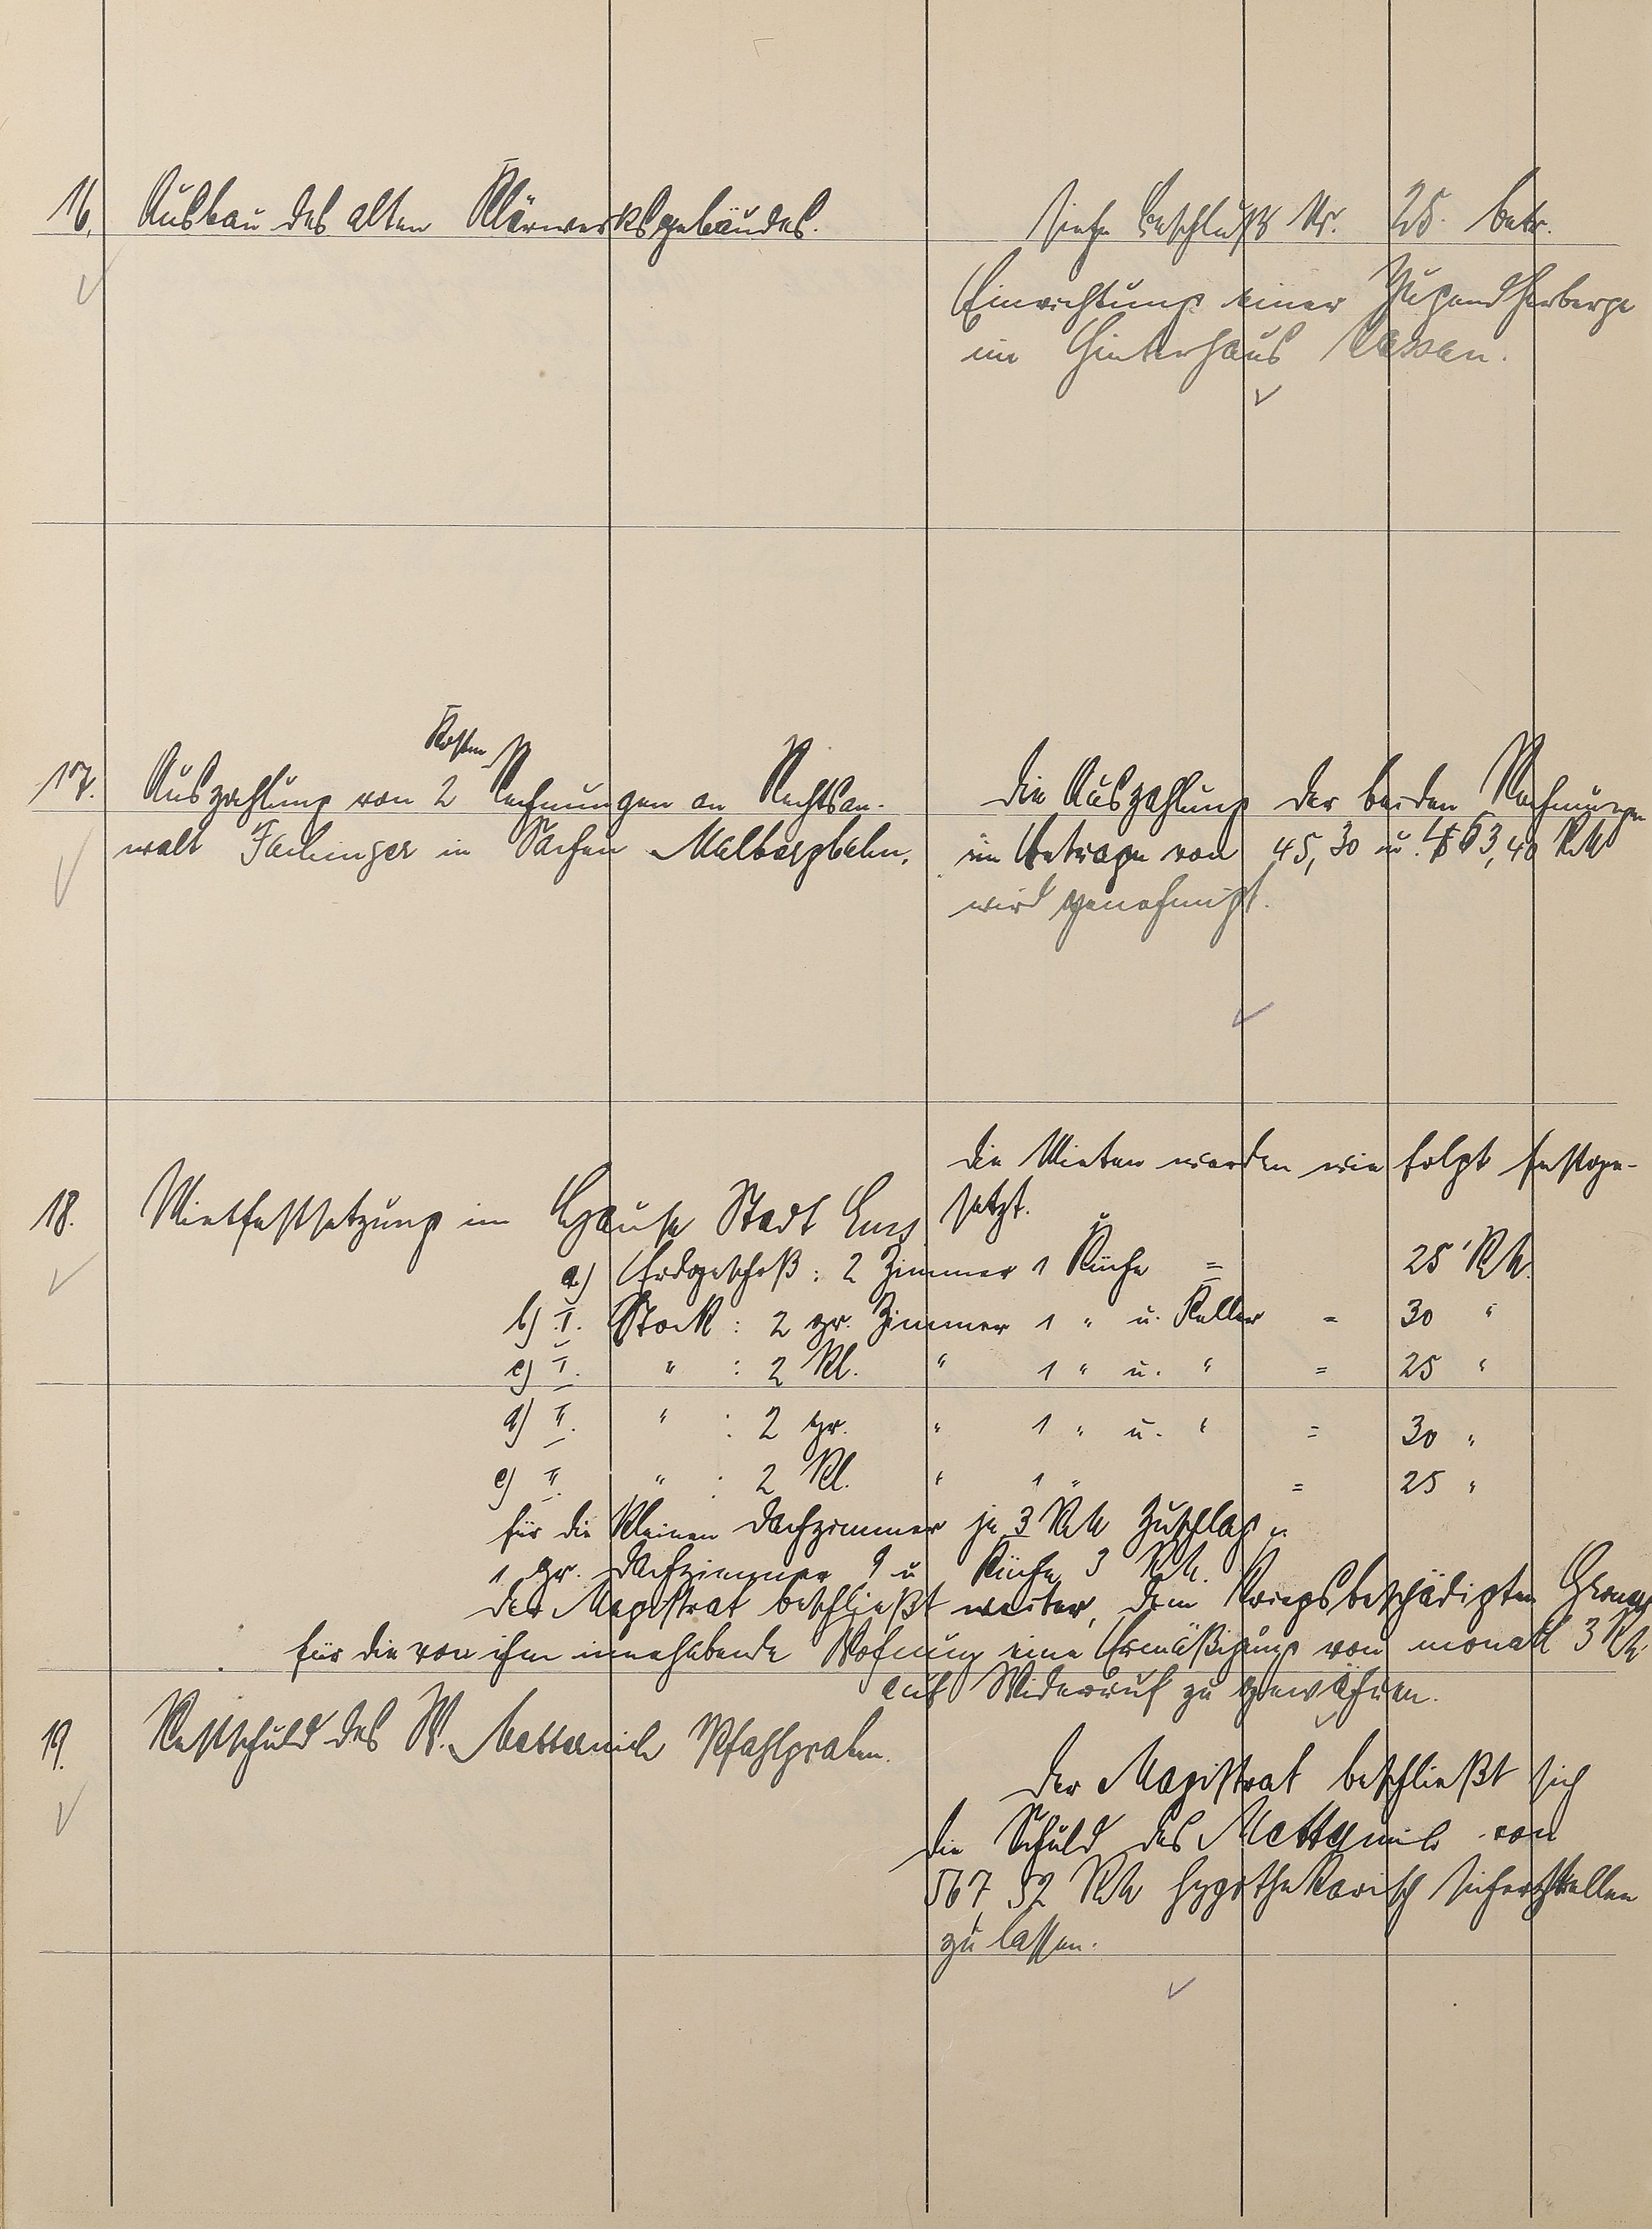 16. Ausbau des alten Klärwerksgebäudes.
siehe Beschluß Nr. 25. betr.
Einrichtung einer Jugendherberge
im Hinterhaus
17. Auszahlung von 2 Kosten Rechnungen an Rechtsan-
walt Fachinger in Sachen Malbergbahn.
Die Auszahlung der beiden Rechnungen
im Betrage von 45,30 u. 463,40 RM
wird genehmigt.
18. Mietfestsetzung im Hause Stadt Ems
Die Mieten werden wie folgt festge-
setzt.
a) Erdgeschoß: 2 Zimmer 1 Küche = 25 RM.
b) I. Stock: 2 gr. Zimmer 1 " u. Keller = 30 "
c) I. " : 2 kl. " 1 " u. " = 25 "
d) II. " : 2 gr. " 1 " u. " = 30 "
e) II. " : 2 kl. " 1 " = 25 "
für die kleinen Dachzimmer je 3 RM Zuschlag u.
1 gr. Dachzimmer u Küche 3 RM.
Der Magistrat beschließt weiter, dem Kriegsbeschädigten
für die von ihm innehabende Wohnung eine Ermäßigung von monatl 3 RM
auf Widerruf zu gewähren.
19. Restschuld des W. Metternich Pfahlgraben.
Der Magistrat beschließt sich
die Schuld des Metternich von
567,52 RM hypothekarisch sicherstellen
zu lassen.